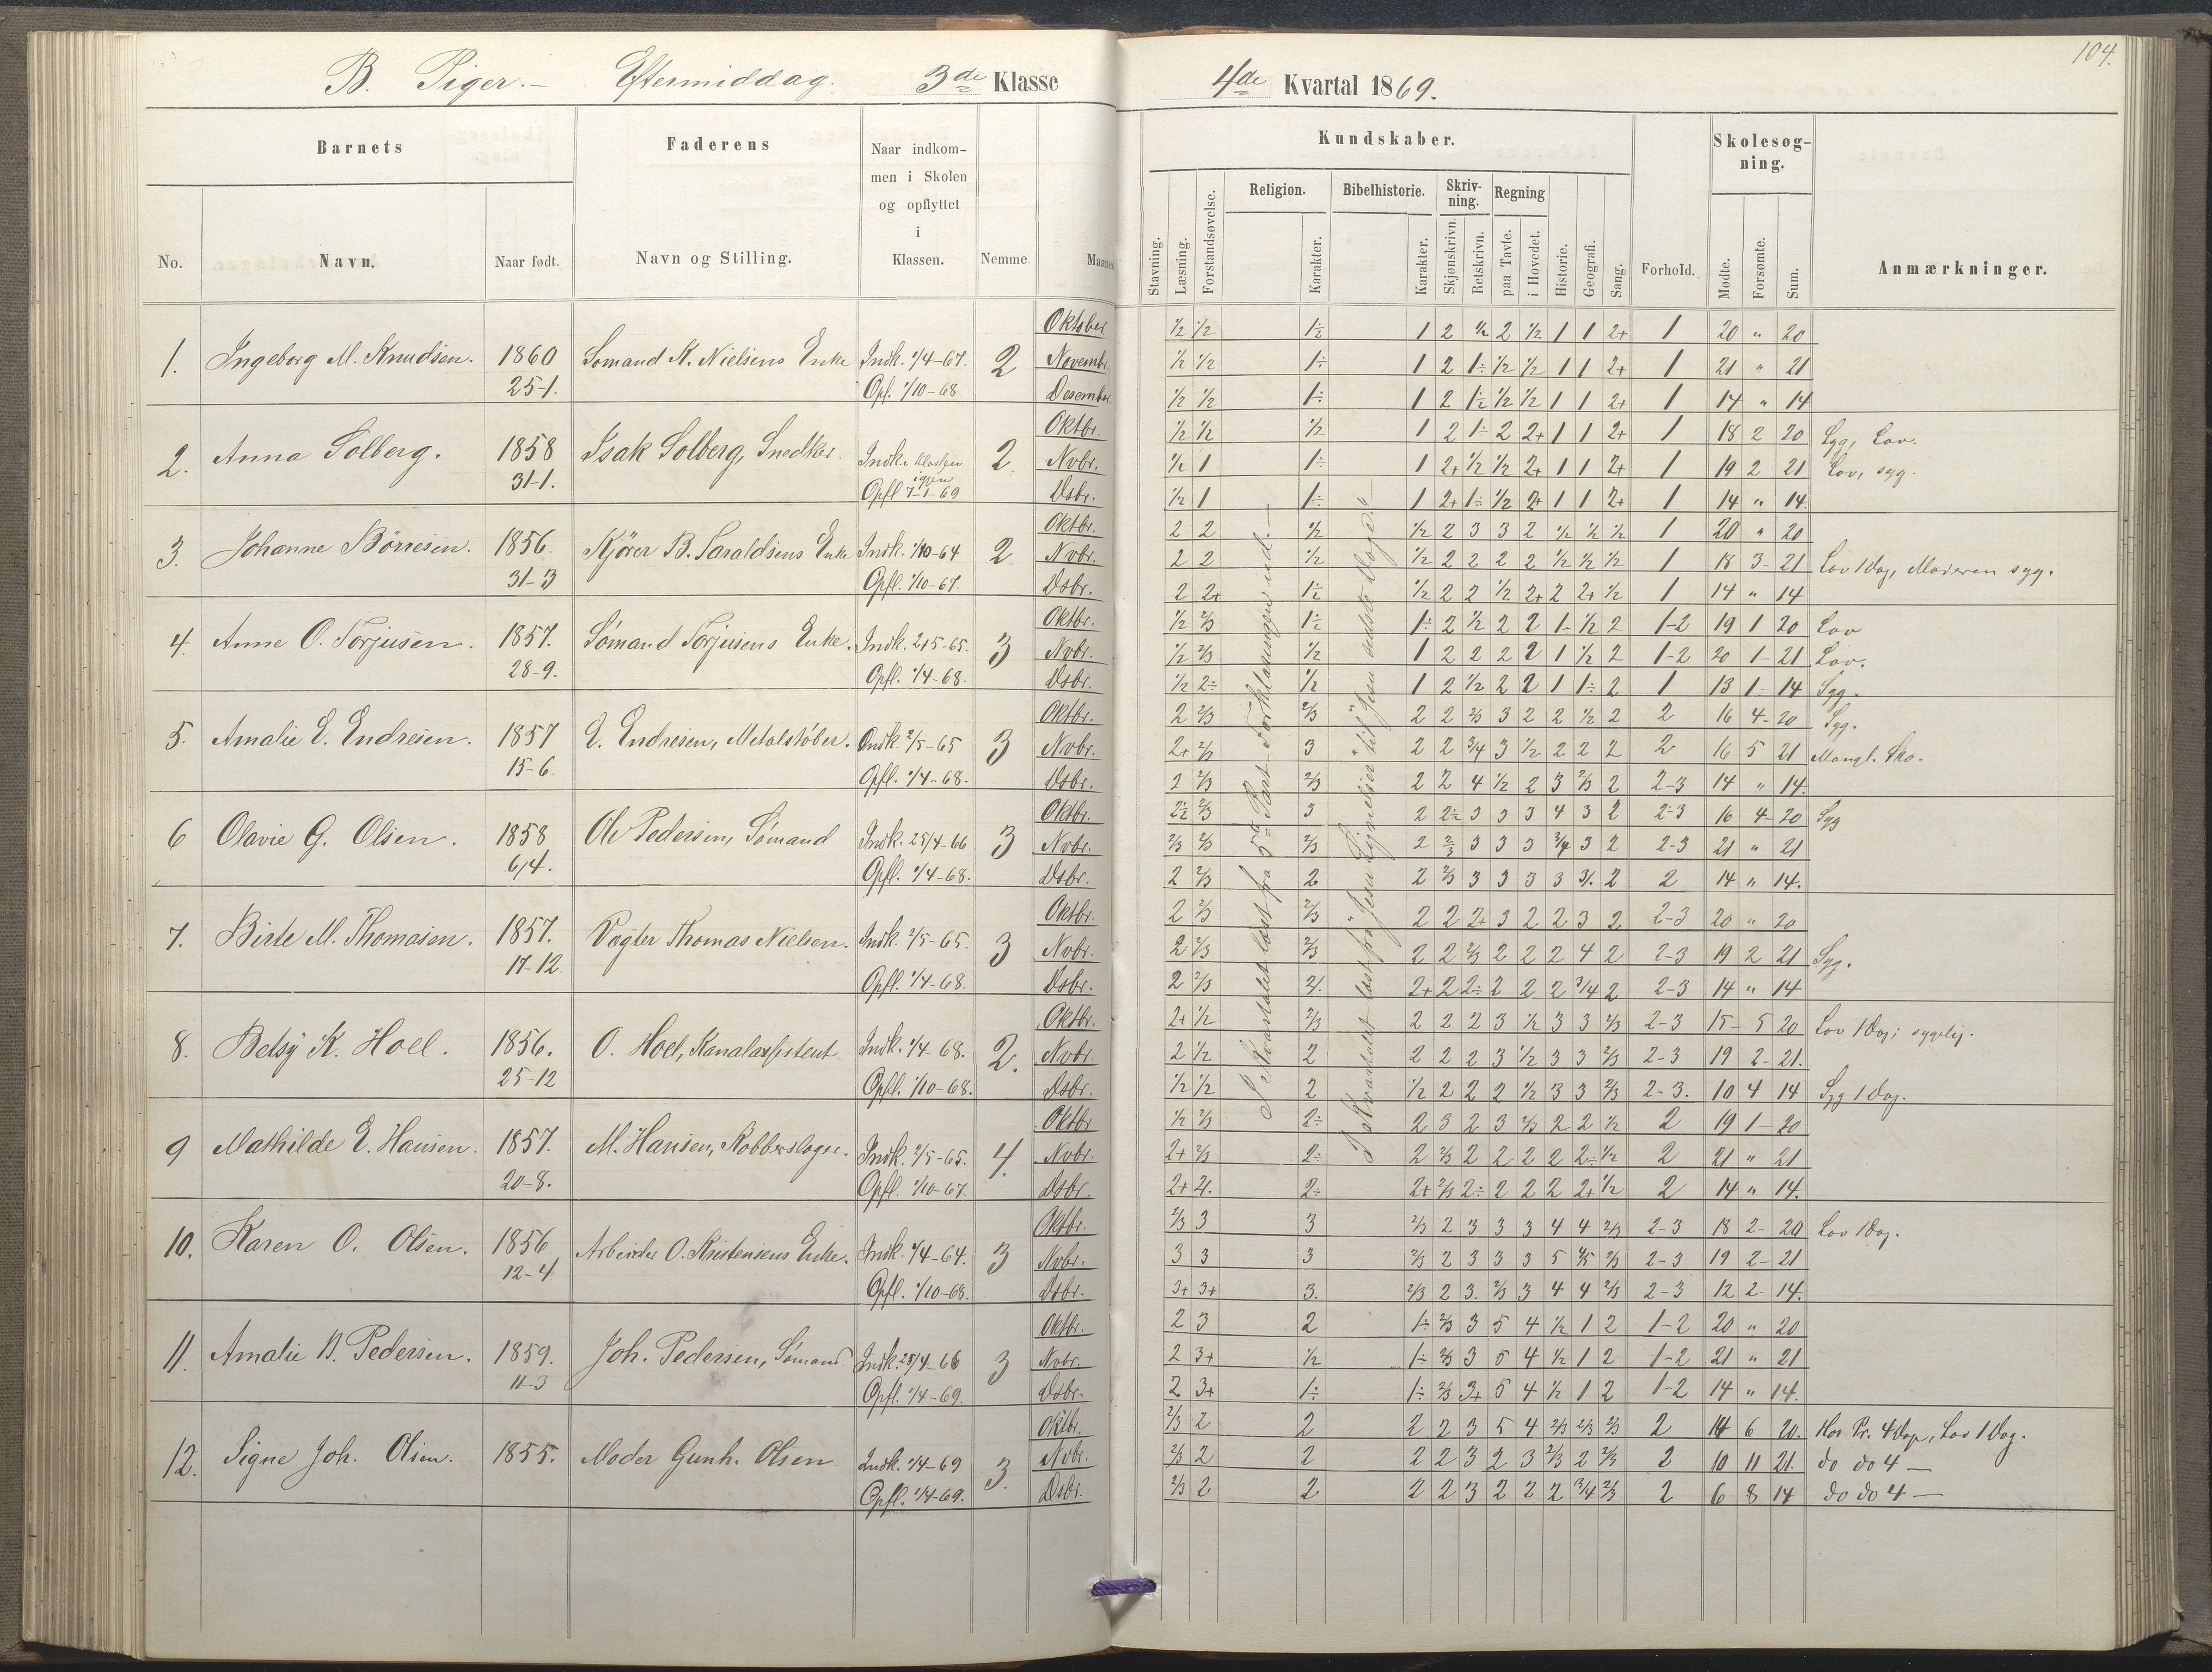 104.
B. Piger. – Eftermiddag. 3de Klasse 4de Kvartal 1869.
Barnets Faderens Naar indkommen i Skolen og opflyttet i Klassen. Nemme Maaned
No. Navn. Naar født. Navn og Stilling.
Kundskaber. Forhold. Skolesøgning. Anmærkninger.
Stavning. Læsning. Forstandsøvelse. Religion. Karakter. Bibelhistorie. Karakter. Skrivning. Skjønskrivn. Retskrivn. Regning paa Tavle. i Hovedet. Historie. Geografi. Sang. Mødte. Forsømte. Sum.
1. Ingeborg M. Knudsen. 1860 Sømand K. Nielsens Enke Indk. 1/4-67. 2 Oktober 1/2 1/2 1÷ 1 2 1/2 2 1/2 1 1 2+ 1 20 " 20
25-1. Opf. 1/10-68 Novembr. 1/2 1/2 1÷ 1 2 1÷ 1/2 1/2 1 1 2+ 1 21 " 21
Desember 1/2 1/2 1÷ 1 2 1÷ 1/2 1/2 1 1 2+ 1 14 " 14
2. Anna Solberg. 1858 Isak Solberg, Snedker. Indk. i Klassen igjen 2 Oktbr. 1/2 1/2 1/2 1 2 1÷ 2 2+ 1 1 2+ 1 18 2 20 Syg, Lov.
31-1. Opfl 7-1-69 Nvbr. 1/2 1 1÷ 1 2+ 1/2 1/2 2+ 1 1 2+ 1 19 2 21 Lov, syg.
Dsbr. 1/2 1 1÷ 1 2+ 1÷ 1/2 2+ 1 1 2+ 1 14 " 14.
3. Johanne Börresen. 1856. Kjører B. Taraldsens Enke Indk. 1/10-64 2 Oktbr. 2 2 1/2 1/2 2 3 3 2 1/2 1/2 1/2 1 20 " 20
31-3 Opfl. 1/10-67. Nvbr. 2 2 1/2 1/2 2 2 2 2 1/2 1/2 1/2 1 18 3 21 Lov 1 Dag, Moderen syg.
Dsbr. 2 2+ 1÷ 1/2 2 2 1/2 2+ 2 2+ 1/2 1 14 " 14
4. Anne O. Torjusen. 1857. Sömand Torjusens Enke. Indk. 2/5-65. 3 Oktbr. 1/2 2/3 1÷ 1÷ 2 1/2 2 2 1- 1/2 2 1-2 19 1 20 Lov
28-9. Opfl. 1/4-68. Nvbr. 1/2 2/3 1/2 1 2 2 2 2 1 1/2 2 1-2 20 1 21 Lov.
Dsbr. 1/2 2÷ 1/2 1 2 1/2 2 2 1 1÷ 2 1 13 1 14 Syg.
5. Amalie E. Endresen. 1857 E. Endresen, Metalstöber. Indk. 2/5-65 3 Oktbr. 2 2/3 2/3 2 2 2/3 3 2 2 1/2 2 2 16 4 20 Syg.
15-6 Opfl. 1/4-68. Nvbr. 2+ 2/3 3 2 2 3/4 3 1/2 2 2 2 2 16 5 21 Mangl. Sko.
Dsbr. 2 2/3 2/3 2 2 4 1/2 2 3 2/3 2 2-3 14 " 14.
6 Olavie G. Olsen. 1858 Ole Pedersen, Sömand Indk. 25/4-66 3 Oktbr. 2÷ 2/3 3 2 2÷ 3 3 3 4 3 2 2-3 16 4 20 Syg
6/4. Opfl. 1/4-68. Nvbr. 2/3 2/3 2/3 2 2/3 3 3 3 3/4 3 2 2-3 21 " 21
Dsbr. 2 2/3 2 2 2/3 3 3 3 3 3/. 2 2 14 " 14.
7. Birte M. Thomasen. 1857. Vægter Thomas Nielsen. Indk. 2/5-65. 3 Oktbr. 2 2/3 2/3 2 2 2+ 3 2 2 3 2 2-3 20 " 20
17-12 Opfl. 1/4-68. Nvbr. 2 2/3 2/3 2 2 2/3 2 2 2 4 2 2-3 19 2 21 Syg.
Dsbr. 2 2/3 2/. 2+ 2 2÷ 2 2 2 3/4 2 2-3 14 " 14
8. Betsy K. Hoel. 1856. O. Hoel, Kanalassistent Indk. 1/4-68. 2. Oktbr. 2+ 1/2 2/3 2 2 2 3 1/2 3 3 2/3 2-3 15 5 20 Lov 1 Dag; sygelig.
25-12 Opfl. 1/10-68. Nvbr. 2 1/2 2 2 2 2 3 1/2 3 3 2/3 2-3 19 2 21.
Dsbr. 1/2 1/2 2 1/2 2 2 2 1/2 3 3 2/3 2-3. 10 4 14 Syg 1 Dag.
9 Mathilde E. Hansen. 1857. M. Hansen, Kobberslager. Indk. 2/5-65. 4. Oktbr 1/2 2/3 2÷ 2 3 2 3 2/3 2 2 1/2 2 19 1 20
20-8. Opfl. 1/10-67. Nvbr. 2+ 2/3 2÷ 2 2/3 2 2 2 2 2÷ 1/2 2 21 " 21
Dsbr. 2+ 2/. 2÷ 2+ 2/3 2÷ 2 2 2 2+ 1/2 2 14 " 14.
10. Karen O. Olsen. 1856 Arbeider O. Kristensens Enke. Indk. 1/4-64. 3 Oktbr. 2/3 3 3 2/3 2 3 3 3 4 4 2/3 2-3 18 2 20 Lov 1 Dag.
12-4 Opfl. 1/10-68. Nvbr. 3 3 3 2/3 2 3 3 3 5 4/5 2/3 2-3 19 2 21
Dsbr. 3+ 3+ 3. 2/3 2 3. 2/3 3 4 4 2/3 2-3 12 2 14.
11. Amalie B. Pedersen. 1859. Joh. Pedersen, Sömand Indk. 25/4-66 3 Oktbr. 2 3 2 1÷ 2/3 3 5 4 1/2 1 2 1-2 20 " 20
11-3 Opfl. 1/4-69. Nvbr. 2 3+ 1/2 1÷ 2/3 3 5 4 1/2 1 2 1-2 21 " 21
Dsbr. 2 3+ 1÷ 1÷ 2/3 3+ 5 4 1/2 1 2 1-2 14 " 14.
12. Signe Joh. Olsen. 1855. Moder Gunh. Olsen Indk. 1/4-69 3. Oktbr. 2/3 2 2 2 2 3 5 4 2/3 2/3 2/3 2 14 6 20. Hos Pr. 4 Dage, Lov 1 Dag.
Opfl. 1/4-69. Nvbr. 2/3 2 2 2 2 3 2 3 2/3 2 2/3 2 10 11 21. do do 4 —
Dsbr. 2/3 2 2 2 2 3 2 2 2 3/4 2/3 2 6 8 14 do do 4 —
I Kvartalet læst fra 5te Part Forklaringen ud. –
I Kvartalet læst fra "Jesu Lignelser" til "Jesu sidste Dage."